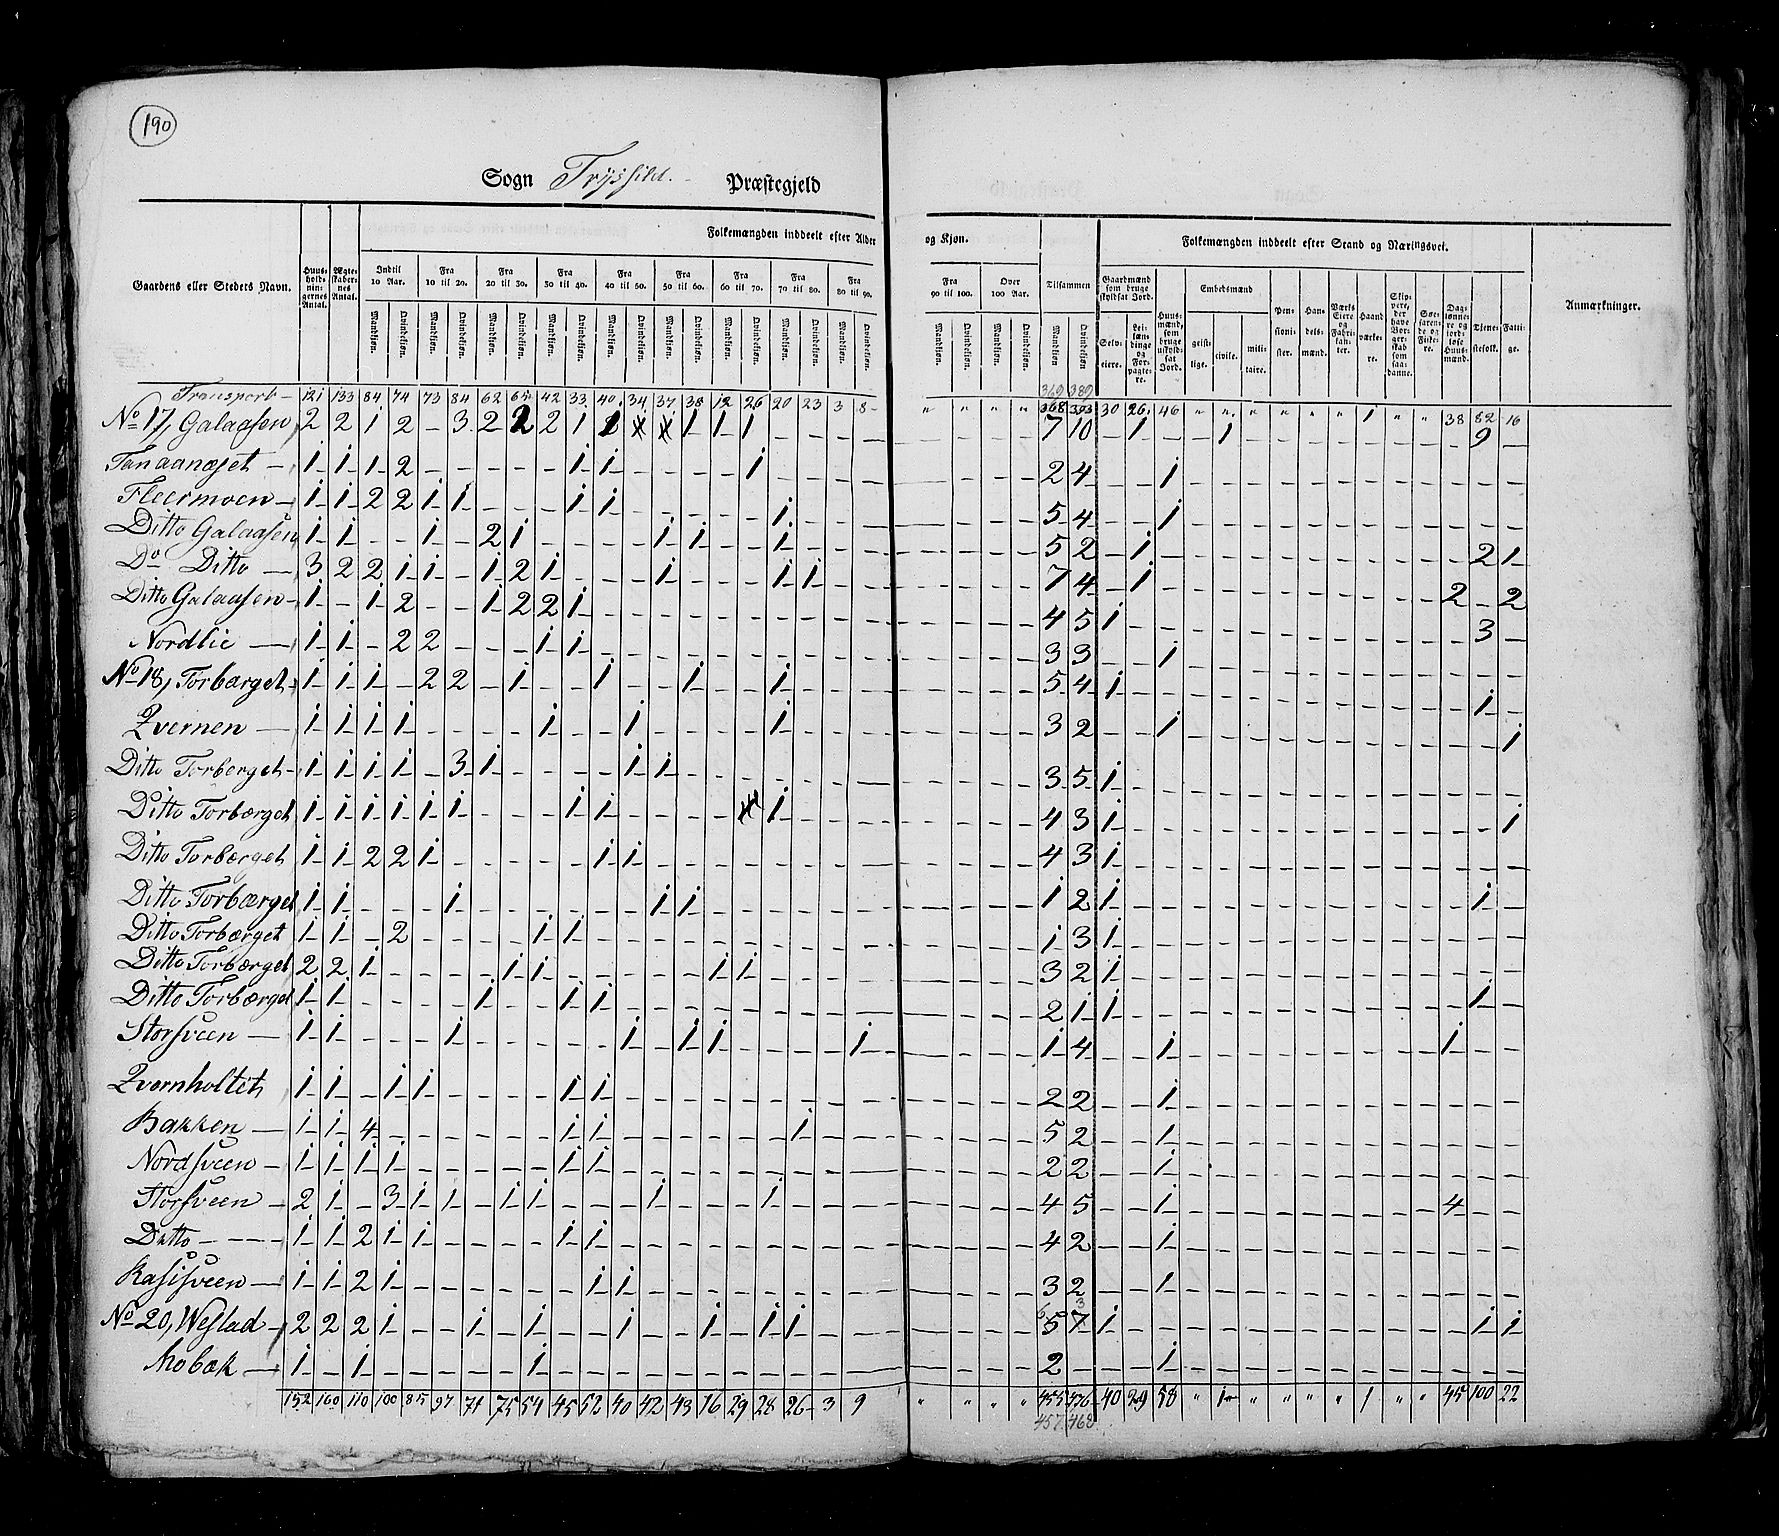 190
Sogn Tryssild. Præstegjeld
Gaardens eller Stedets Navn.
Huusholdningernes Antal.
Ægteskabernes Antal.
Folkemængden inddeelt efter Alder og Kjøn.
Indtil 10 Aar.
Fra 10 til 20.
Fra 20 til 30.
Fra 30 til 40.
Fra 40 til 50.
Fra 50 til 60.
Fra 60 til 70.
Fra 70 til 80.
Fra 80 til 90.
Fra 90 til 100.
Over 100 Aar.
Mandkjøn. Qvindekjøn.
Tilsammen
Mandkjøn Qvindekjøn.
Folkemængden inddeelt efter Stand og Næringsvei.
Gaardmænd som bruge skyldsat Jord.
Selveiere.
Leilændinge og Forpagtere.
Huusmænd, som bruge uskyldsat Jord.
Embedsmænd
geistlige. civile. militaire.
Pensionister.
Handelsmænd.
Værks Eiere og Fabrikanter.
Haandværkere.
Skippere, der have Borgerskab som saadanne.
Søefarende og Fiskere.
Dagslønnere og jordløse Huusmænd.
Tjenestefolk.
Fattige.
Anmærkninger.
369 389
Transport – 121 133 84 74 73 84 62 65 42 33 40 34 37 38 12 26 20 23 3 8 – " " " " 368 393 30 26 46 " " " " " " 1 " " 38 82 16
No 17, Galaasen 2 2 1 2 – 3 2 2 2 1 1 1 1 1 7 10 – 1 – – 1 – 9 –
Tanaanæset – 1 1 1 2 – 1 1 – 1 – 2 4 – – 1 –
Fleermoen – 1 1 2 2 1 1 – 1 1 – 1 – 5 4 – – 1 –
Ditto Galaasen 1 1 – – 1 – 2 1 – 1 1 – 1 – 5 2 – 1 – 2 1
Do Ditto – 3 2 2 1 1 – 1 2 1 – 1 – 1 1 – 7 4 – 1 – 2 – 2
Ditto Galaasen – 1 – 1 2 – – 1 2 2 1 – 4 5 1 – 3 –
Nordlie – 1 1 – 2 2 – 1 1 – 3 3 – – 1 –
No 18, Torbærget 1 1 1 – 2 2 – 1 – – 1 – – 1 – – 1 – 5 4 1 – 1 –
Qvernen – 1 1 1 1 – 1 – – 1 – 1 – 3 2 – – 1 – 1
Ditto Torberget – 1 1 1 1 – 3 1 – 1 1 – 3 5 1 –
Ditto Torbærget 1 1 1 1 1 1 – 1 1 – 1 – 4 3 1 – 1
Ditto Torbærget 1 1 2 2 1 – 1 1 – 4 3 1 –
Ditto Torbærget 1 1 – – – 1 – 1 1 – 1 2 1 – 1 –
Ditto Torbærget 1 1 – 2 – 1 1 – 1 3 1 –
Ditto Torbærget 2 2 1 – 1 1 – 1 1 – 3 2 1 –
Ditto Torbærget 1 1 – 1 – – 1 1 – 2 1 1 – 1 –
Storsveen – 1 1 – 1 – 1 – 1 1 – 1 – 1 4 – – 1 – 1 –
Qvernholtet 1 1 – 1 1 – 1 1 – 2 2 – – 1 –
Bakken – 1 1 4 – 1 1 – 1 – 5 2 – – 1 –
Nordsveen – 1 1 1 1 – 1 1 – 2 2 – – 1 –
Storsveen – 2 1 – 3 1 1 – 1 1 – 1 – 1 – 4 5 – – 1 – 4 –
Ditto – – – – 1 1 2 1 1 – 1 1 – 4 2 – – 1 –
Rasisveen – 1 1 2 1 – 1 1 – 3 2 – – 1 –
No 20, Westad – 2 2 2 1 – – 1 – 1 – – 1 – – 1 – 1 1 – 5 7 1 – 1 1
Mobæk – 1 – 1 – 1 – 2 – – – 1 –
152 160 110 100 85 97 71 75 54 45 52 40 42 43 16 29 28 26 3 9 " " " " 455 456 40 29 58 " 1 " " " " " 1 " " 45 100 22
457 468